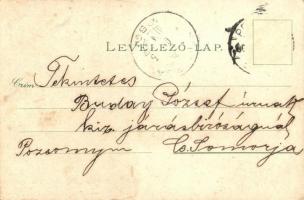 LEVELEZŐ-LAP.
Czim:
Tekintetes
Buday József úrnak
kir. járásbiróságnál
Pozsonym Cs. Somorja